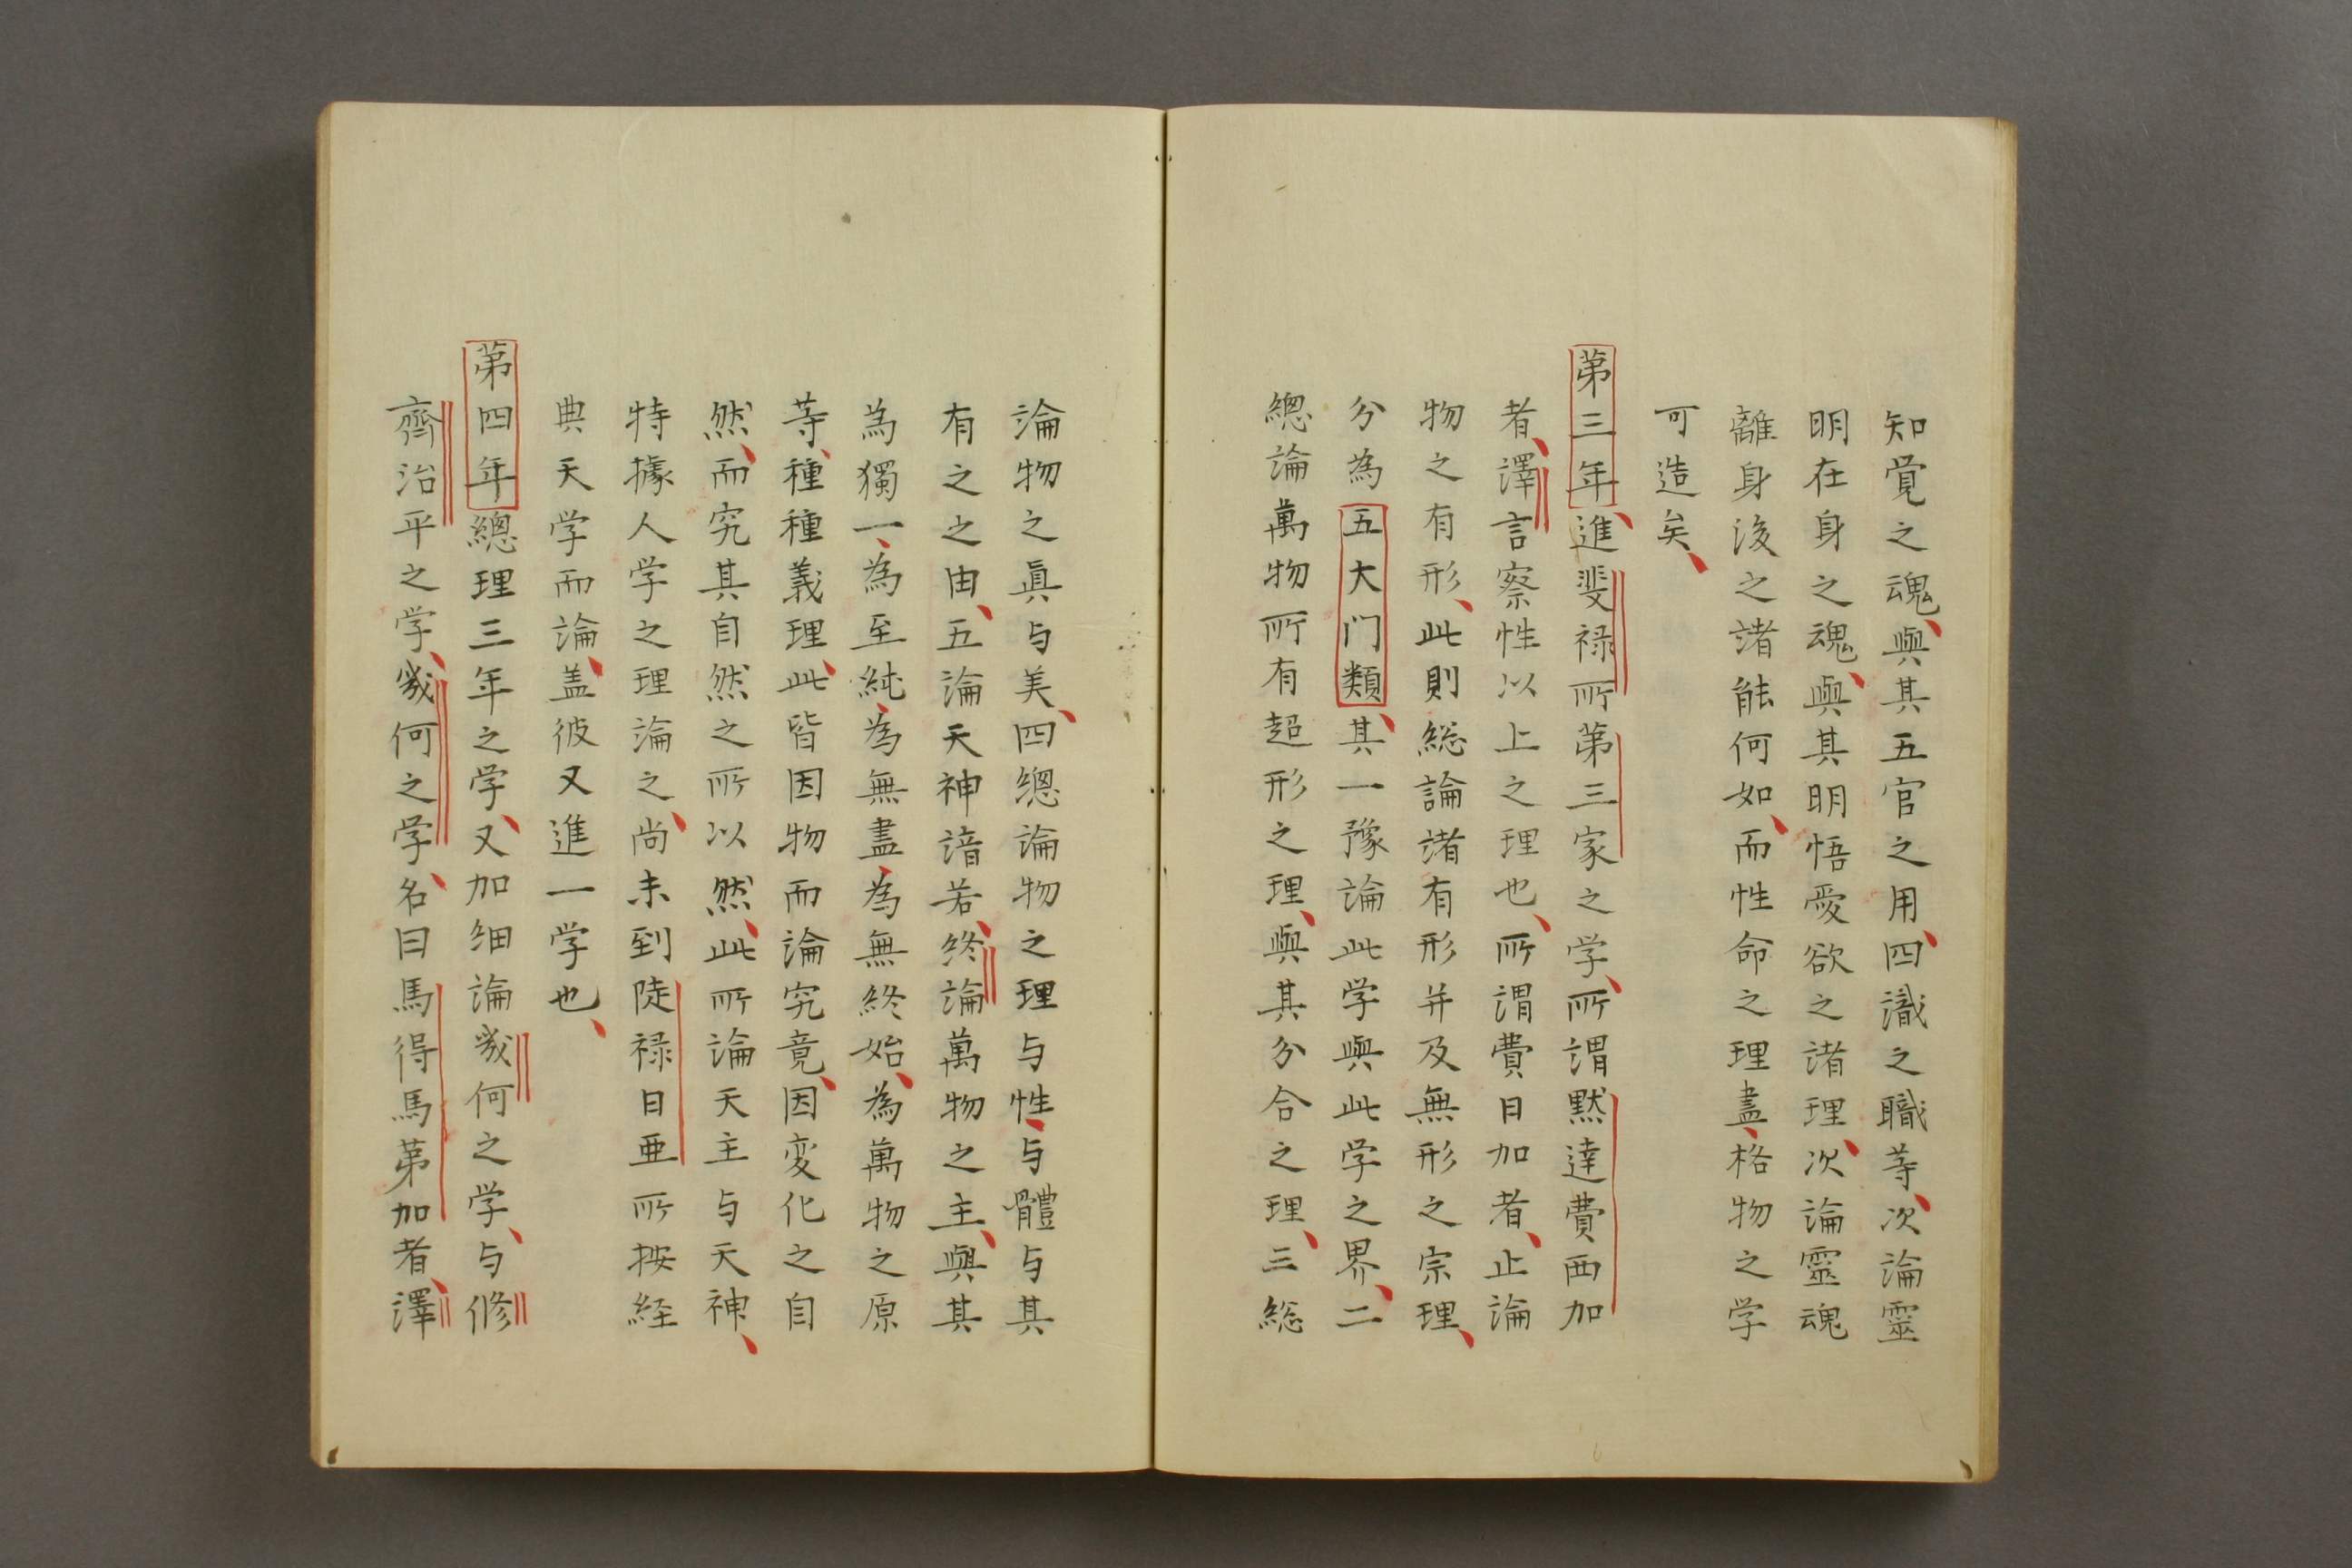 知覚之魂、與其五官之用、四識之職等、次論靈
明在身之魂、與其明悟愛欲之諸理、次論靈魂
離身後之諸能何如、而性命之理盡、格物之学
可造矣、
第三年、進斐禄所第三家之学、所謂默達費西加
者、譯言察性以上之理也、所謂費日加者、止論
物之有形、此則総論諸有形并及無形之宗理、
分為五大门類、其一豫論此学與此学之界、二
總論萬物所有超形之理、與其分合之理、三総
論物之眞与美、四總論物之理与性、与體与其
有之之由、五論天神諳若、終論萬物之主、與其
為獨一、為至純、為無盡、為無終始、為萬物之原
等、種種義理、此皆因物而論究竟、因変化之自
然、而究其自然之所以然、此所論天主与天神、
特據人学之理論之、尚未到陡禄日亜所按経
典天学而論、盖彼又進一学也、
第四年總理三年之学、又加细論幾何之学、与修
齊治平之学、幾何之学、名曰馬得馬第加者、譯